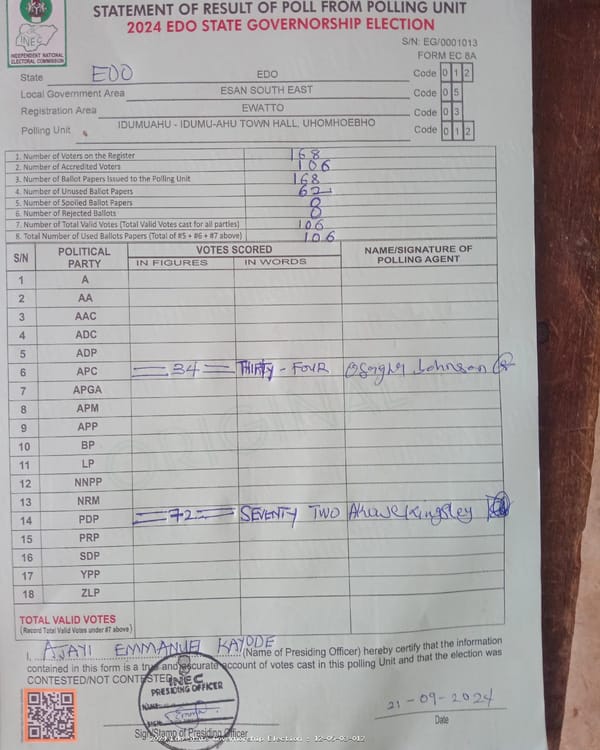 STATEMENT OF RESULT OF POLL FROM POLLING UNIT
2024 EDO STATE GOVERNORSHIP ELECTION
INEC
INDEPENDENT NATIONAL
ELECTORAL COMMISSION
S/N: EG/0001013
FORM EC 8A
State EDO EDO Code 0 1 2
Local Government Area ESAN SOUTH EAST Code 0 5
Registration Area EWATTO Code 0 3
Polling Unit IDUMUAHU - IDUMU-AHU TOWN HALL, UHOMHOEBHO Code 0 1 2
1. Number of Voters on the Register 168
2. Number of Accredited Voters 106
3. Number of Ballot Papers Issued to the Polling Unit 168
4. Number of Unused Ballot Papers 62
5. Number of Spoiled Ballot Papers 0
6. Number of Rejected Ballots 0
7. Number of Total Valid Votes (Total Valid Votes cast for all parties) 106
8. Total Number of Used Ballots Papers (Total of #5 + #6 + #7 above) 106
S/N POLITICAL PARTY VOTES SCORED NAME/SIGNATURE OF POLLING AGENT
IN FIGURES IN WORDS
1 A
2 AA
3 AAC
4 ADC
5 ADP
6 APC 34 THIRTY - FOUR Johnson
7 APGA
8 APM
9 APP
10 BP
11 LP
12 NNPP
13 NRM
14 PDP 72 SEVENTY TWO Kingsley
15 PRP
16 SDP
17 YPP
18 ZLP
TOTAL VALID VOTES
(Record Total Valid Votes under #7 above)
I, AJAYI EMMANUEL KAYODE (Name of Presiding Officer) hereby certify that the information
contained in this form is a true and accurate account of votes cast in this polling Unit and that the election was
CONTESTED/NOT CONTESTED
INEC
PRESIDING OFFICER
NAME:
SIGN:
21-09-2024
Sign/Stamp of Presiding Officer Date